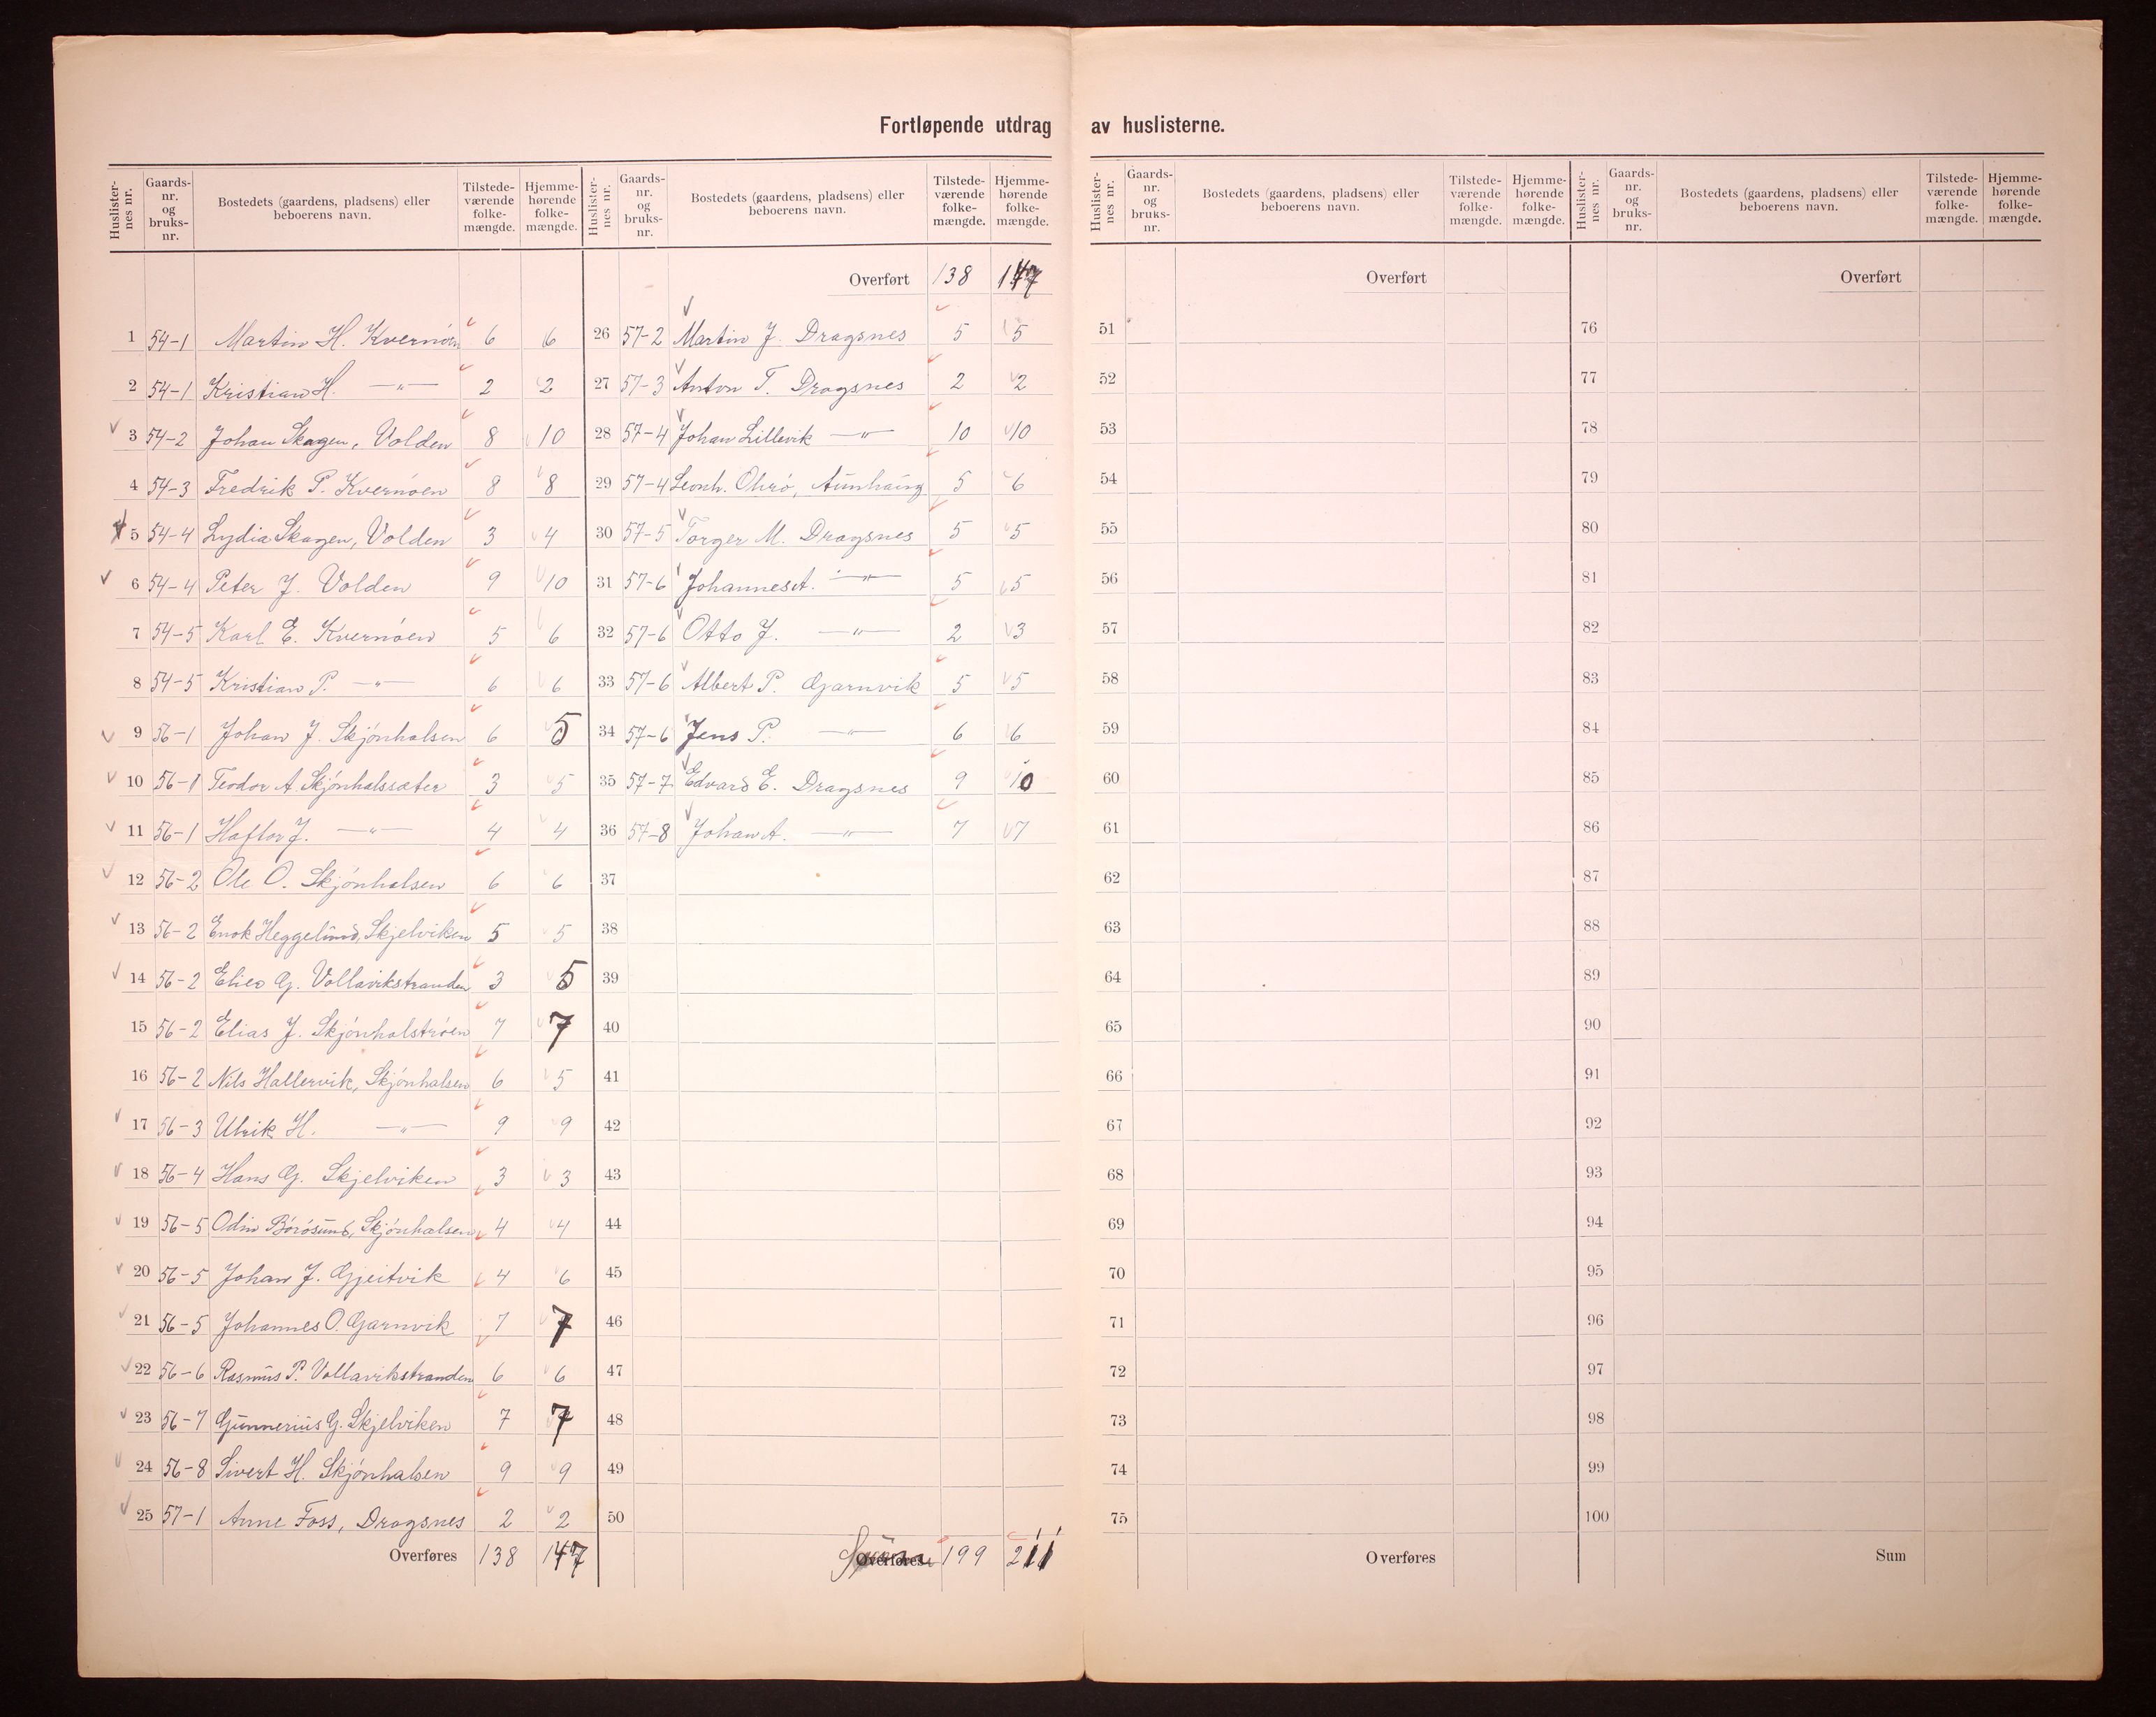 Fortløpende utdrag av huslisterne.
Huslister-nes nr. Gaards-nr. og bruks-nr. Bostedets (gaardens, pladsens) eller beboerens navn. Tilstede-værende folke-mængde. Hjemme-hørende folke-mængde.
1 54-1 Martin H. Kvernöen 6 6
2 54-1 Kristian H. —"— 2 2
3 54-2 Johan Skagen, Volden 8 10
4 54-3 Fredrik P. Kvernöen 8 8
5 54-4 Lydia Skagen, Volden 3 4
6 54-4 Peter J. Volden 9 10
7 54-5 Karl E. Kvernöen 5 6
8 54-5 Kristian P. —"— 6 6
9 56-1 Johan J. Skjönhalsen 6 5
10 56-1 Teodor A. Skjönhalssæter 3 5
11 56-1 Haftor J. —"— 4 4
12 56-2 Ole O. Skjönhalsen 6 6
13 56-2 Enok Heggelund, Skjelviken 5 5
14 56-2 G. Vollavikstranden 3 5
15 56-2 Elias J. Skjönhalströen 7 7
16 56-2 Nils Hallervik, Skjönhalsen 6 5
17 56-3 Ulrik H. —"— 9 9
18 56-4 Hans G. Skjelviken 3 3
19 56-5 Odin Börösund, Skjönhalsen 4 4
20 56-5 Johan J. Gjeitvik 4 6
21 56-5 Johannes O. Garnvik 7 7
22 56-6 Rasmus P. Vollavikstranden 6 6
23 56-7 Gunnerius G. Skjelviken 7 7
24 56-8 Sivert H. Skjönhalsen 9 9
25 57-1 Anne Foss, Dragsnes 2 2
Overføres 138 147
Huslister-nes nr. Gaards-nr. og bruks-nr. Bostedets (gaardens, pladsens) eller beboerens navn. Tilstede-værende folke-mængde. Hjemme-hørende folke-mængde.
Overført 138 147
26 57-2 Martin J. Dragsnes 5 5
27 57-3 Anton T. Dragsnes 2 2
28 57-4 Johan Lillevik —"— 10 10
29 57-4 Leonh. Aunhaug 5 6
30 57-5 Torger M. Dragsnes 5 5
31 57-6 Johannes A. —"— 5 5
32 57-6 Otto J. —"— 2 3
33 57-6 Albert P. Garnvik 5 5
34 57-6 Jens P. —"— 6 6
35 57-7 Edvard E. Dragsnes 9 10
36 57-8 Johan A. —"— 7 7
37
38
39
40
41
42
43
44
45
46
47
48
49
50
Overføres 199 211
Huslister-nes nr. Gaards-nr. og bruks-nr. Bostedets (gaardens, pladsens) eller beboerens navn. Tilstede-værende folke-mængde. Hjemme-hørende folke-mængde.
Overført
51
52
53
54
55
56
57
58
59
60
61
62
63
64
65
66
67
68
69
70
71
72
73
74
75
Overføres
Huslister-nes nr. Gaards-nr. og bruks-nr. Bostedets (gaardens, pladsens) eller beboerens navn. Tilstede-værende folke-mængde. Hjemme-hørende folke-mængde.
Overført
76
77
78
79
80
81
82
83
84
85
86
87
88
89
90
91
92
93
94
95
96
97
98
99
100
Sum